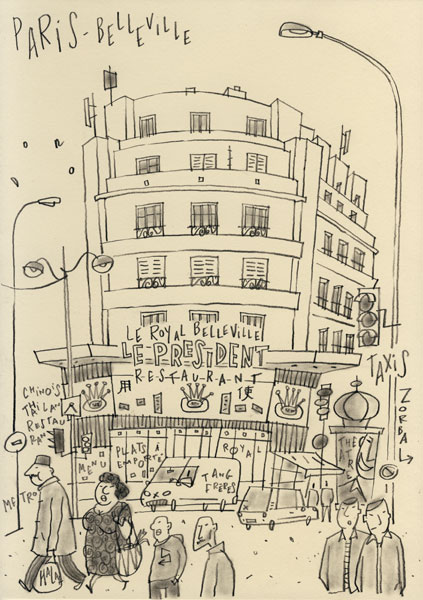 PARIS-BELLEVILLE
LE ROYAL BELLEVILLE
LE PRESIDENT
RESTAURANT
CHINOIS
THAILAN
RESTAU
RAN
TAXIS
ZORBA
MENU
PLATS A
EMPORTÉ
ROYAL
THE
ATRE
METRO
TANG
FRERES
HALAL